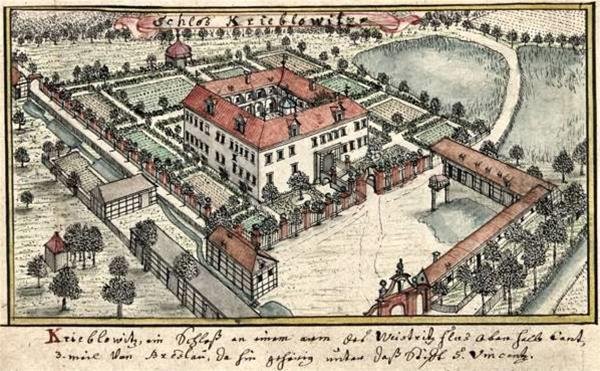 Schloß Krieblowitz
Krieblowitz, ein Schloß an einem arm des Weistritz flus oben halb Cant,
3. meil von Breslau, da hin gehörig unter daß Stift S. Vincentz.